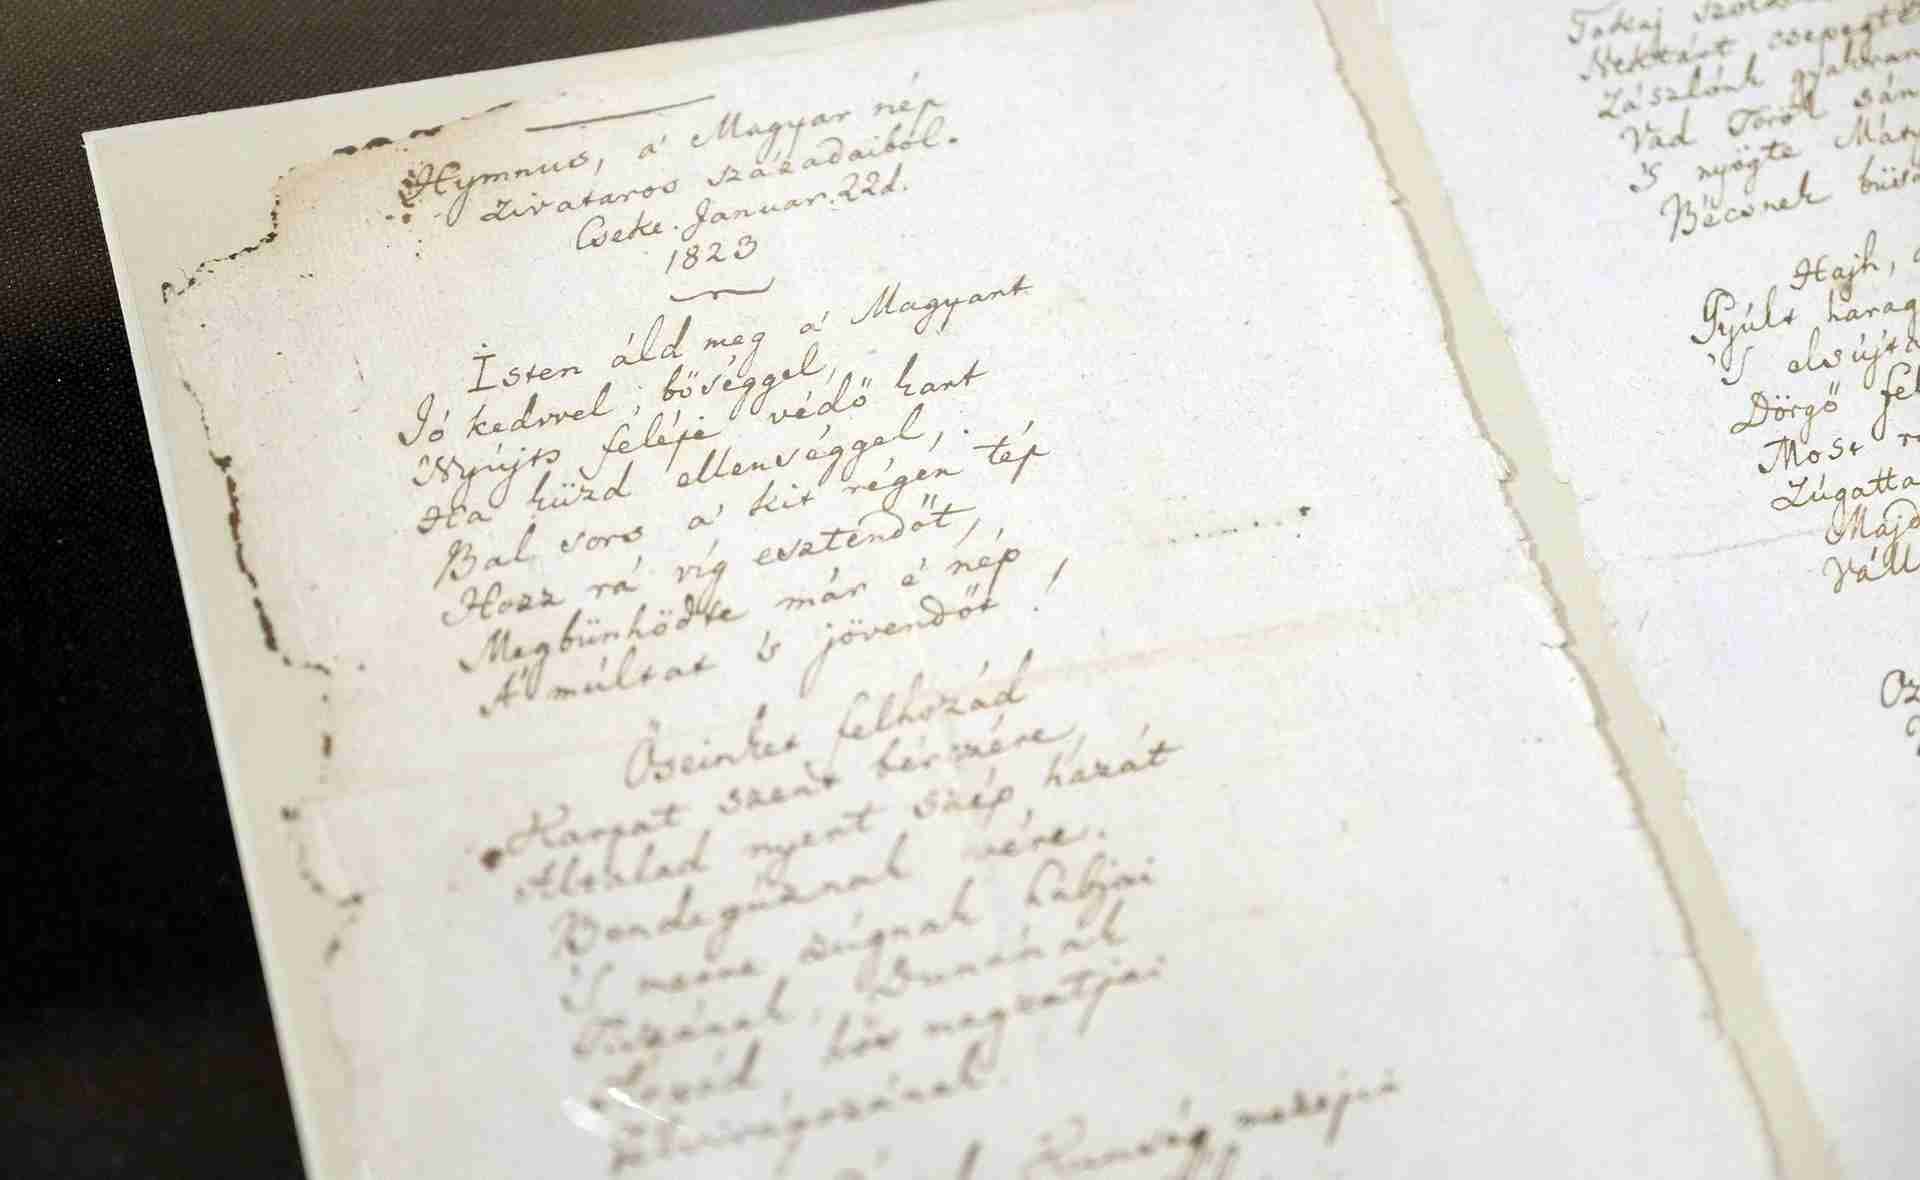 Hymnus, a' Magyar nép
zivataros századaiból.
Cseke. Januar. 22d.
1823
Isten áld meg a' Magyart
Jó kedvvel, bőséggel,
Nyújts feléje védő kart
Ha küzd ellenséggel,
Bal sors a' kit régen tép
Hozz rá víg esztendőt,
Megbünhödte már e' nép
A' múltat 's jövendőt!
Őseinket felhozád
Karpat szent bérczére,
Általad nyert szép hazát
Bendegúznak vére.
'S merre zúgnak habjai
Tiszának, Dunának
Árpád hős magzatjai
Felvirágozának.
Kunság mezején
Tokaj
Nektárt csepegtet
Zászlónk gyakran
Vad Török sán
'S nyögte Máty
Bécsnek büsz
Hajh,
Gyúlt harag
'S elsújt
Dörgő fel
Most
Zúgatta
Majd
Váll